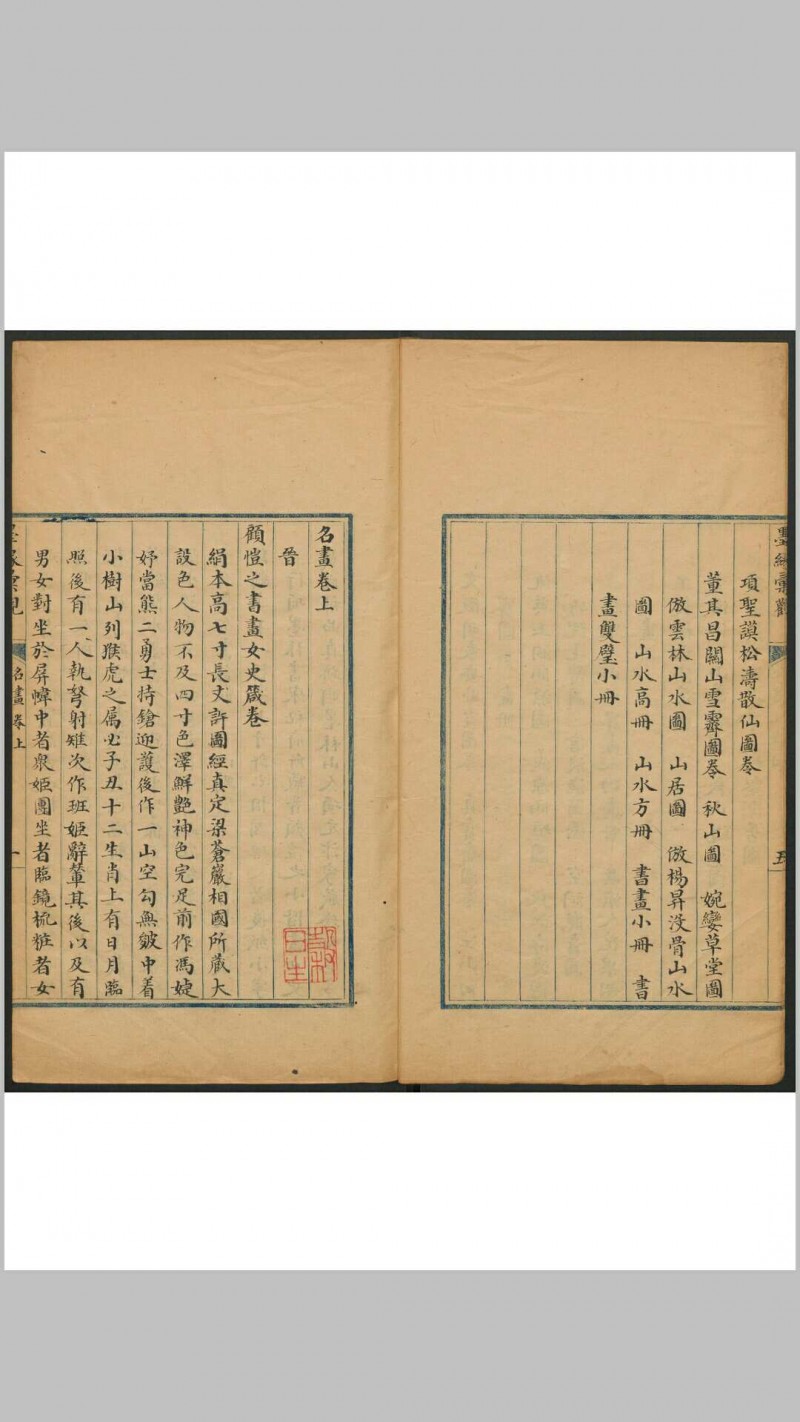 項聖謨松濤散仙圖卷
董其昌關山雪霽圖卷 秋山圖 婉孌草堂圖
倣雲林山水圖 山居圖 倣楊昇沒骨山水
圖 山水高冊 山水方冊 書畫小冊 書
畫雙璧小冊
五
名畫卷上
晉
顧愷之書畫女史箴卷
絹本高七寸長丈許圖經真定梁蒼巖相國所藏大
設色人物不及四寸色澤鮮艷神色完足前作馮婕
妤當熊二勇士持鎗迎護後作一山空勾無皴中着
小樹山列猴虎之属必子丑十二生肖上有日月臨
照後有一人執弩射雉次作班姬辭輦其後以及有
男女對坐於屏幃中者衆姬團坐者臨鏡梳粧者女
名畫卷上
一